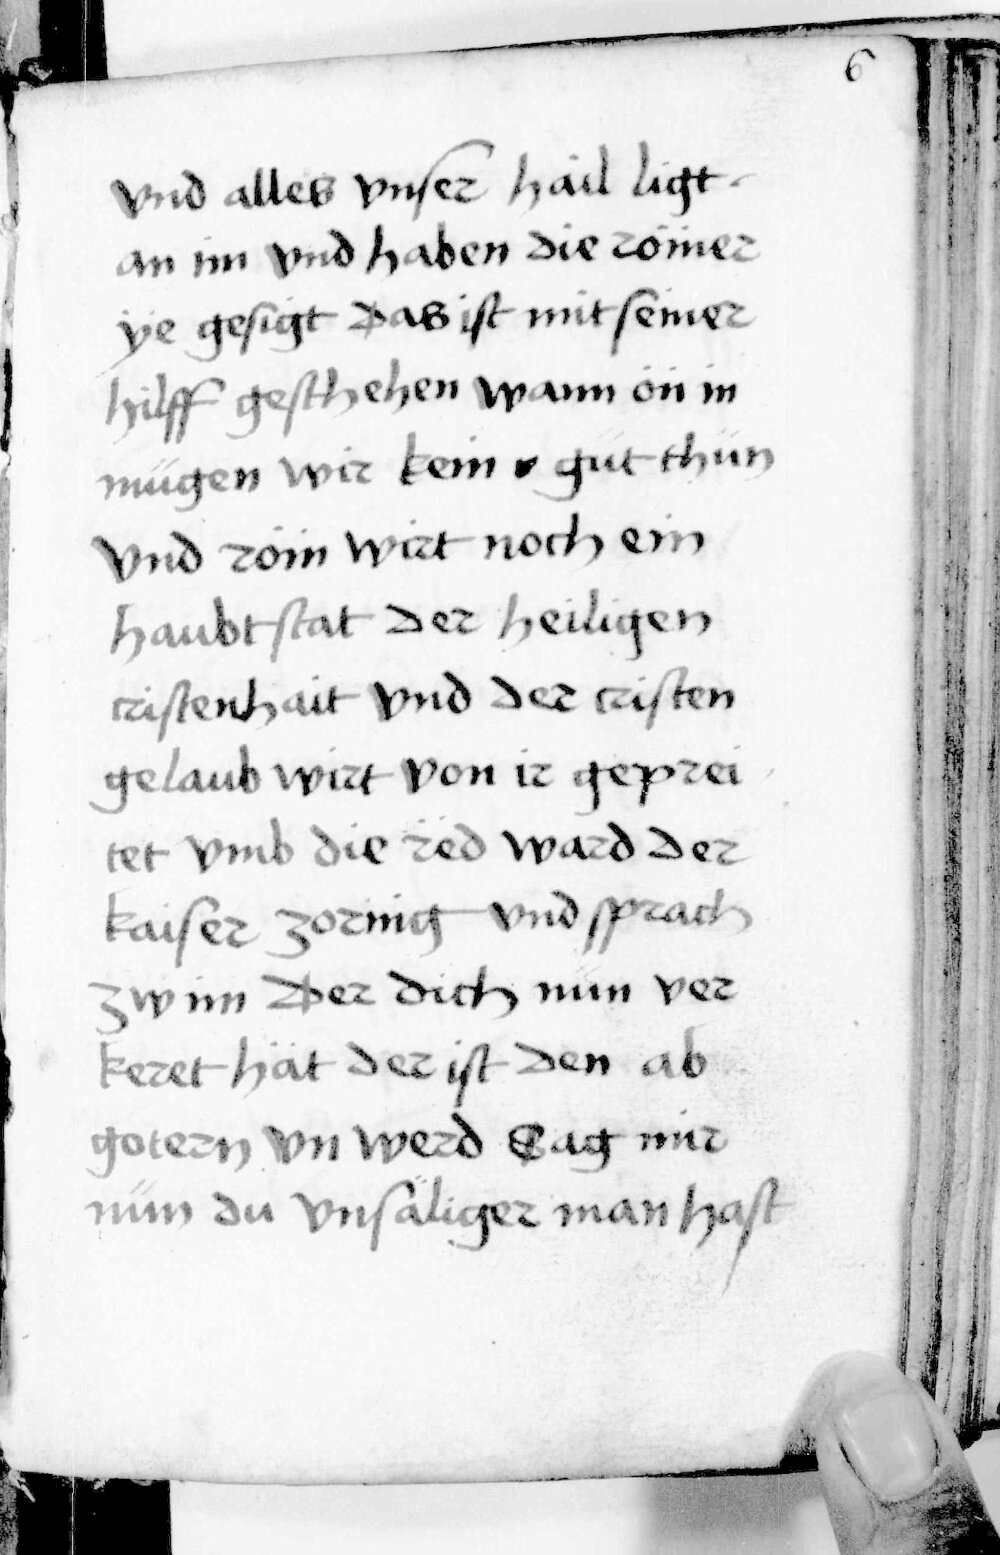 6
vnd alles vnser hail ligt
an im vnd haben die römer
ÿe gesigt Das ist mit seiner
hilff geschehen wann ön in
mügen wir kein gut thün
vnd röm wirt noch ein
haubtstat der heiligen
cristenhait vnd der cristen
gelaub wirt von ir geprei
tet vmb die red ward der
kaiser zornig vnd sprach
zw im Der dich nün ver
keret hät der ist den ab
gotern vn werd Sag mir
nün du vnsäliger man hast